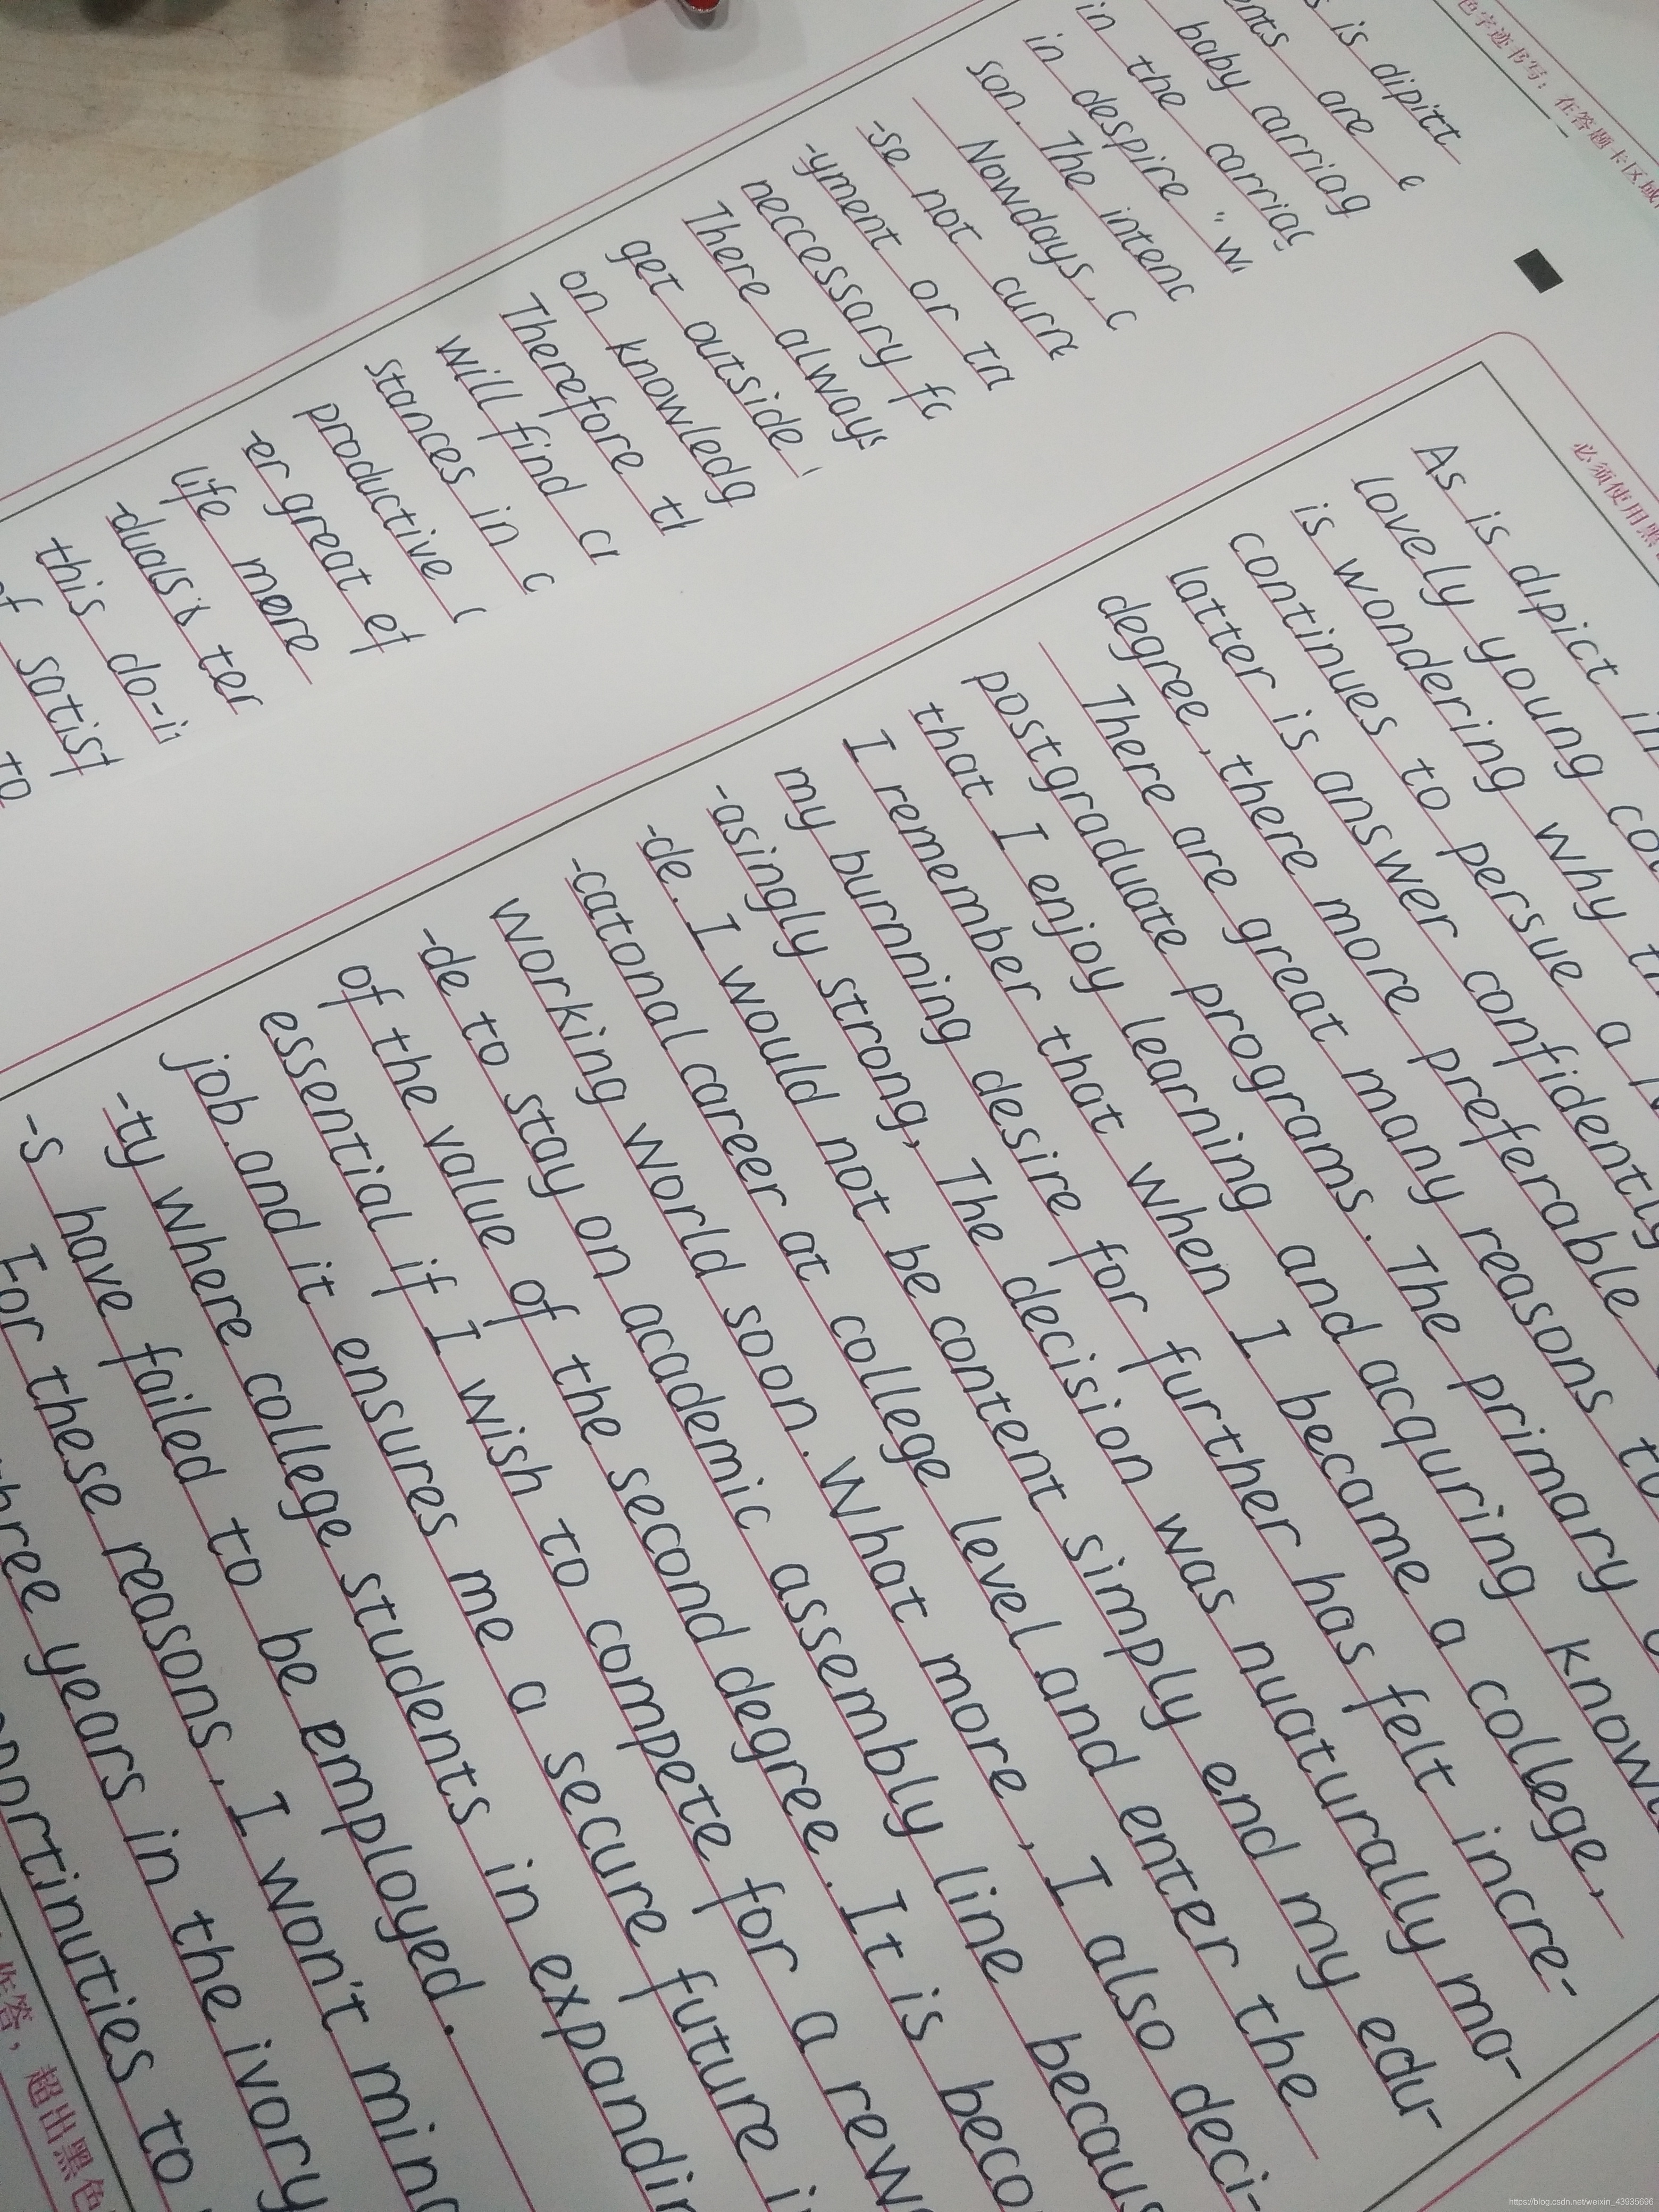 色字迹书写：在答题卡区域
is dipitt
are
baby carriag
in the carriag
in despire "
son. The
Nowdays,
-se not
-yment or
neccessary
There always
get outside
on knowledg
Therefore
will find
stances in
productive
-er great
life more
-duals
this
必须使用黑
As is dipict
lovely young
is wondering why
continues to persue a
latter is answer confidently
degree, there more preferable
There are great many reasons to
postgraduate programs. The primary
that I enjoy learning and acquring
I remember that when I became a college,
my burnning desire for further has felt incre-
-asingly strong, The decision was nuaturally ma-
-de. I would not be content simply end my edu-
-catonal career at college level and enter the
working world soon. What more, I also deci-
-de to stay on academic assembly line
of the value of the second degree. It is
essential if I wish to compete for a
job. and it ensures me a secure future
-ty where college students in
-s have failed to be employed.
For these reasons, I won't
years in the ivory
to
作答，超出黑色
https://blog.csdn.net/weixin_43935696